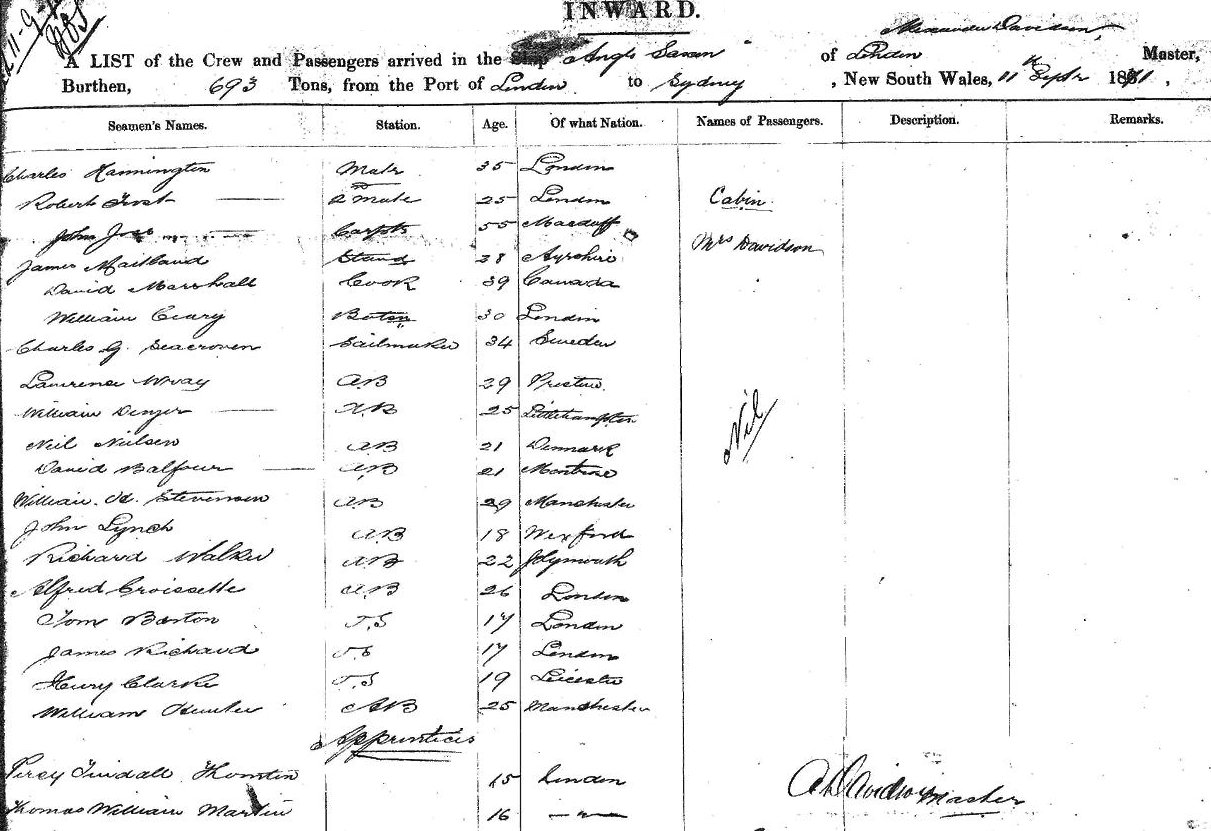 INWARD.
Alexander Davidson,
A LIST of the Crew and Passengers arrived in the Ship "Anglo Saxon" of London Master,
Burthen, 693 Tons, from the Port of London to Sydney, New South Wales, 11th Septr 1881,
Seamen's Names. Station. Age. Of what Nation. Names of Passengers. Description. Remarks.
Charles Hannington Mate 35 London
Robert Frost 2 Mate 25 London Cabin
John Carptr 55 Macduff
Mrs Davidson
James Maitland Stewd 38 Ayrshire
David Marshall Cook 39 Canada
William Geary Botsn 30 London
Charles G. Seacroven Sailmaker 34 Sweden
Lawrence Wray AB 29 Preston
William Denyer AB 25 Littlehampton
Nil
Neil Nielsen AB 21 Denmark
David Balfour AB 21 Montrose
William. Hd. Stevenson AB 29 Manchester
John Lynch AB 18 Wexford
Richard Walker AB 22 Plymouth
Alfred Croissette AB 26 London
Tom Barton O.S 17 London
James Richard O.S 17 London
Henry Clarke O.S 19 Leicester
William Hunter AB 25 Manchester
Apprentices
Percy Tindall Thornton 15 London
A Davidson Master
Thomas William Martin 16 — " —